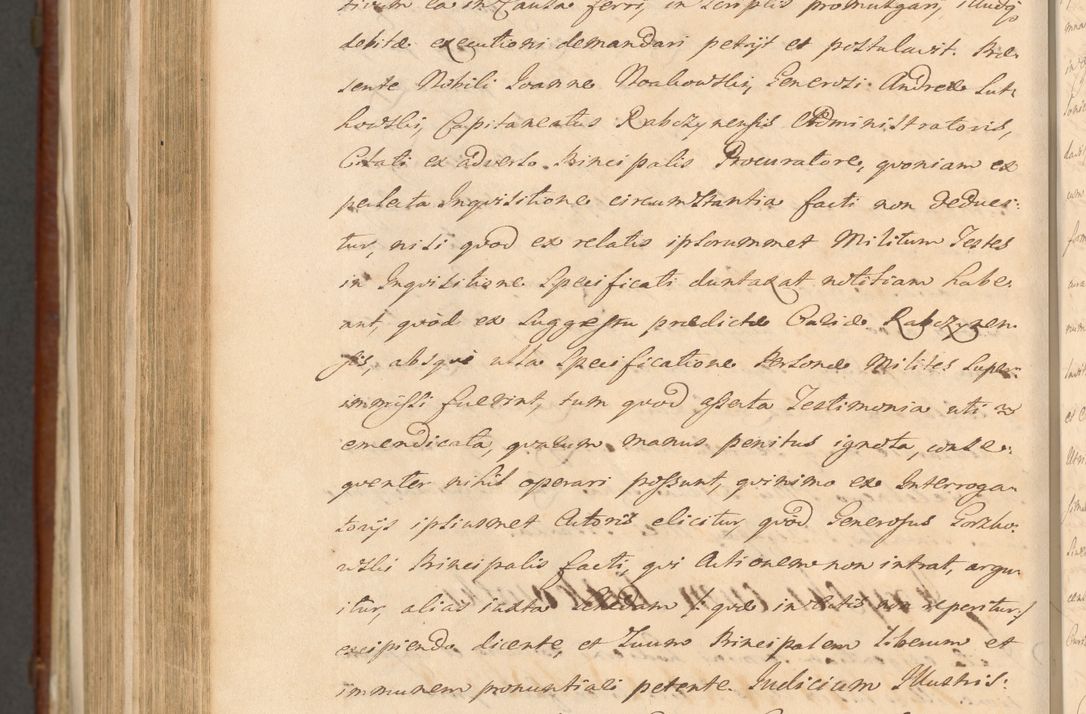 tivum ea in Causa ferri, in Scriptis promulgari, illudq́
debitæ executioni demandari petijt et postulavit. Præ-
sente Nobili Joanne Noakowski, Generosi Andreæ Lut-
kowski, Capitaneatus Rabczynensis Administratoris,
Citati ex adverso Principalis Procuratore, quoniam ex
peracta Inquisitione circumstantia facti non deduci-
tur, nisi quod ex relatis ipsorummet Militum Testes
in Inquisitione Specificati duntaxat notitiam habe-
ant, quòd ex Suggestu prædictæ Rabczynen-
sis, absque ulla Specificatione Personæ Milites Super-
immissi fuerint, tum quod asserta Testimonia uti
emendicata, quarum manus penitus ignota, conse-
quenter nihil operari possunt, quinimo ex Interroga-
torijs ipsiusmet Actoris elicitur, quòd Generosus Gorzko-
wski Principalis facti, qui Actionem non intrat, argu-
itur, alias iuxta Schedam /: quæ in Actis non reperitur :/
excipiendo dicente, et Suum Principalem liberum et
immunem pronuntiali petente. Judicium Illustris-